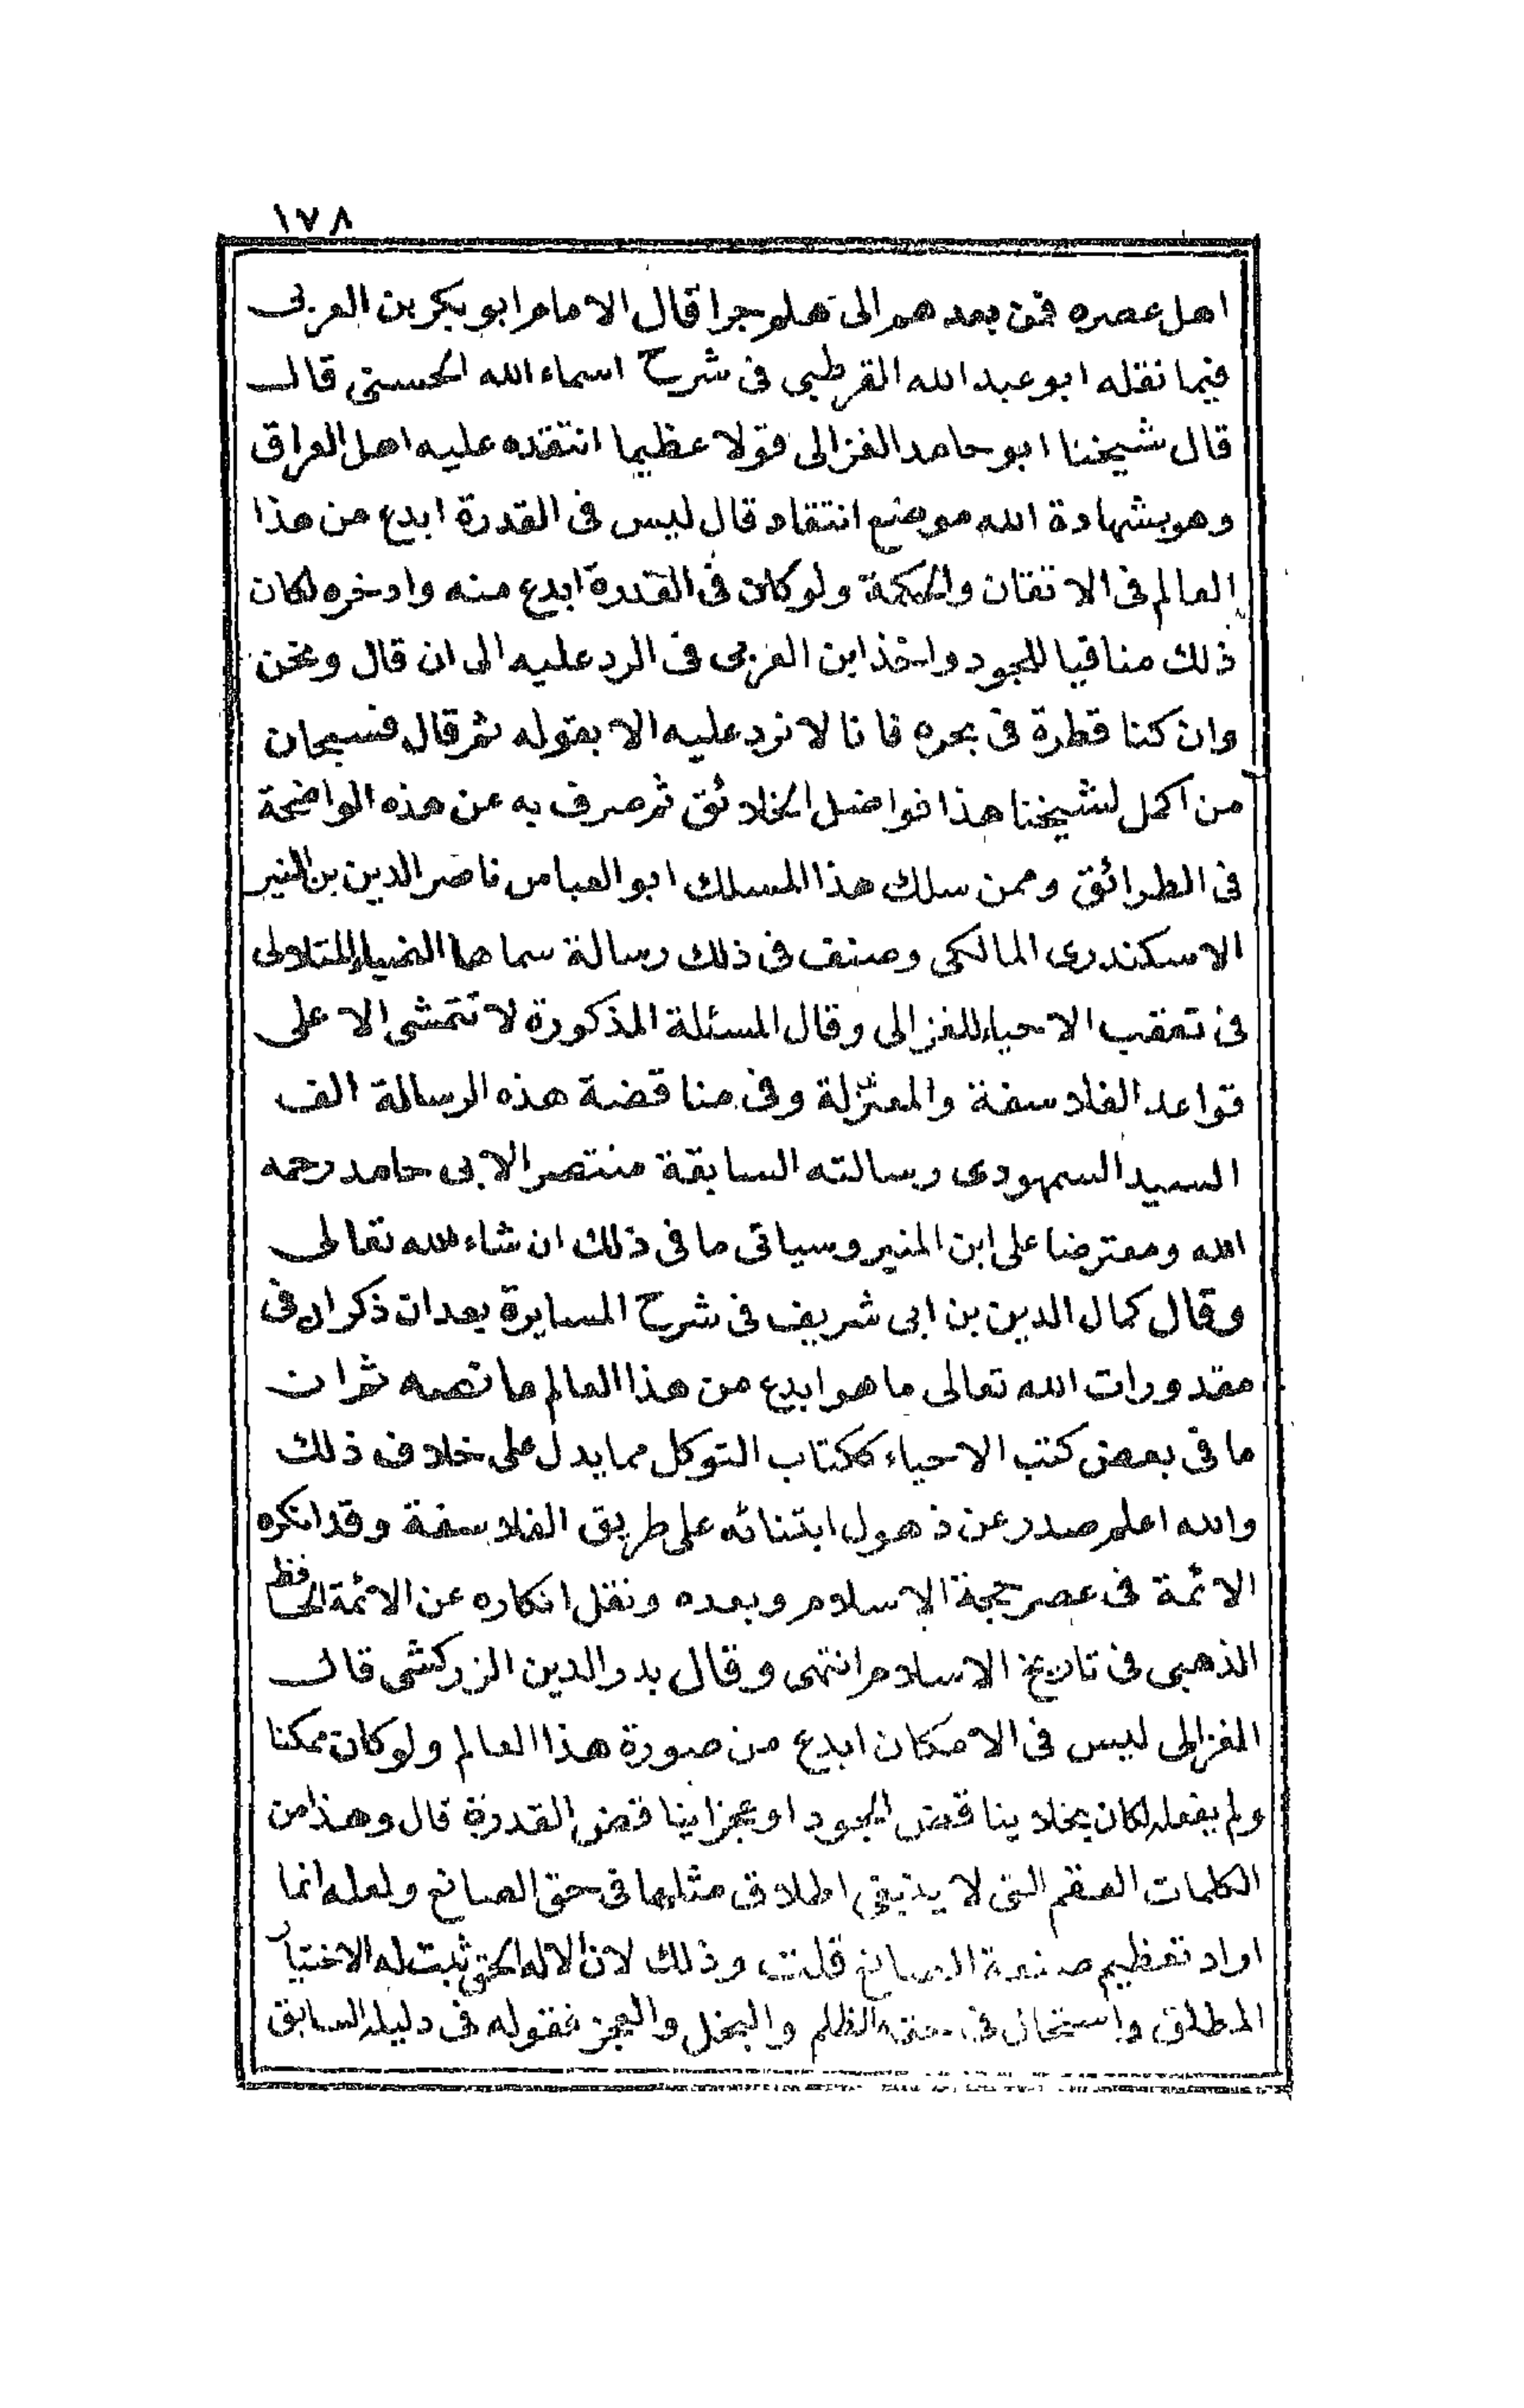 ١٧٨
اهل عصره فمن بعدهم الى هلم جرا قال الامام ابو بكر بن العربى
فيما نقله ابو عبد الله القرطبى فى شرح اسماء الله الحسنى قال
قال شيخنا ابو حامد الغزالى قولا عظيما انتقده عليه اهل العراق
وهو بشهادة الله موضع انتقاد قال ليس فى القدرة ابدع من هذا
العالم فى الاتقان والحكمة ولو كان فى القدرة ابدع منه وادخره لكان
ذلك منافيا للجود واخذ ابن العربى فى الرد عليه الى ان قال ونحن
وان كنا قطرة فى بحره فانا لا نرد عليه الا بقوله ثم قال فسبحان
من اكمل لشيخنا هذا فواضل الخلائق ثم صرف به عن هذه الواضحة
فى الطرائق وممن سلك هذا المسلك ابو العباس ناصر الدين بن المنير
الاسكندرى المالكى وصنف فى ذلك رسالة سماها الضياء المتلالى
فى تعقب الاحياء للغزالى وقال المسئلة المذكورة لا تتمشى الا على
قواعد الفلاسفة والمعتزلة وفى مناقضة هذه الرسالة الف
السيد السمهودى رسالته السابقة منتصرا لابى حامد رحمه
الله ومعترضا على ابن المنير وسياتى ما فى ذلك ان شاء الله تعالى
وقال كمال الدين بن ابى شريف فى شرح المسايرة بعد ان ذكر ان فى
مقدورات الله تعالى ما هو ابدع من هذا العالم ما نصه ثم ان
ما فى بعض كتب الاحياء ككتاب التوكل مما يدل على خلاف ذلك
والله اعلم صدر عن ذهول ابتنائه على طريق الفلاسفة وقد انكره
الائمة فى عصر حجة الاسلام وبعده ونقل انكاره عن الائمة الحافظ
الذهبى فى تاريخ الاسلام انتهى وقال بدر الدين الزركشى قال
الغزالى ليس فى الامكان ابدع من صورة هذا العالم ولو كان ممكنا
ولم يفعله لكان بخلا يناقض الجود او عجزا يناقض القدرة قال وهذا من
الكلمات العقم التى لا ينبغى اطلاق مثلها فى حق الصانع ولعله انما
اراد تعظيم صنعة الصانع قلت وذلك لان الاله الحق ثبت له الاختيار
المطلق واستحال فى حقه الظلم والبخل والعجز فقوله فى دليله السابق